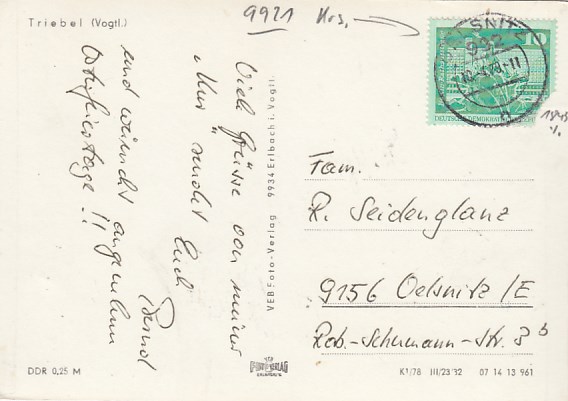 Triebel (Vogtl.)
9921 Krs.
Viele Grüsse von meiner
Kur sendet Euch
Bernd
und wünscht angenehme
Osterfeiertage!!
VEB Foto-Verlag 9934 Erlbach i. Vogtl.
10
DEUTSCHE DEMOKRATISCHE
Fam.
R. Seidenglanz
9156 Oelsnitz /E
Rob.-Schumann-Str. 3b
DDR 0,25 M
K1/78 III/23/32 07 14 13 961